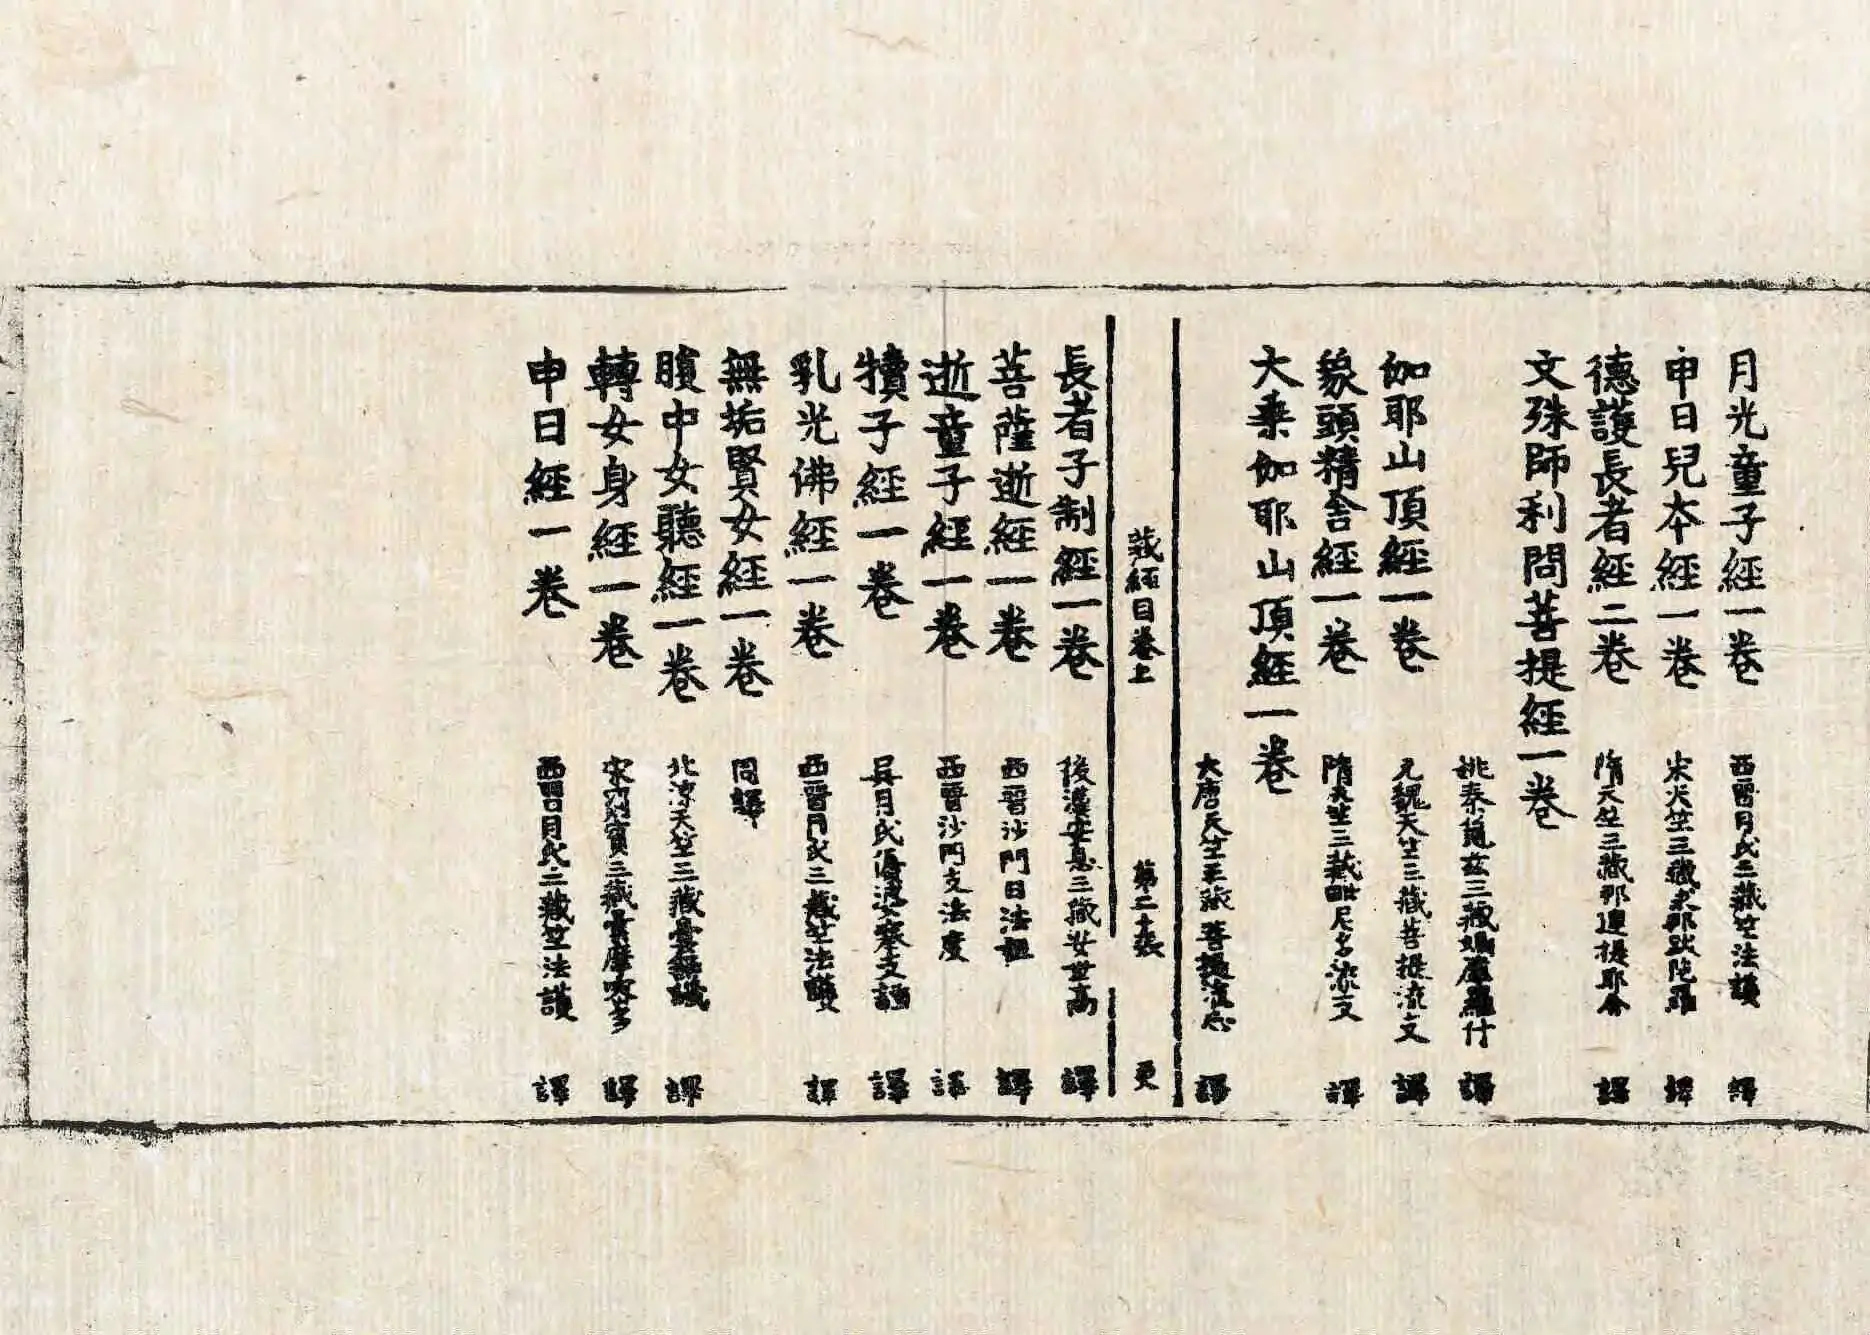 月光童子經一卷 西晉月氏三藏竺法護 譯
申日兒本經一卷 宋天竺三藏求那跋陀羅 譯
德護長者經二卷 隋天竺三藏那連提耶舍 譯
文殊師利問菩提經一卷
姚秦龜茲三藏鳩摩羅什 譯
伽耶山頂經一卷 元魏天竺三藏菩提流支 譯
象頭精舍經一卷 隋天竺三藏毗尼多流支 譯
大乘伽耶山頂經一卷
大唐天竺三藏菩提流志 譯
藏經目卷上 第二十張 更
長者子制經一卷 後漢安息三藏安世高 譯
菩薩逝經一卷 西晉沙門白法祖 譯
逝童子經一卷 西晉沙門支法度 譯
犢子經一卷 吳月氏優婆塞支謙 譯
乳光佛經一卷 西晉月氏三藏竺法護 譯
無垢賢女經一卷 同譯
腹中女聽經一卷 北涼天竺三藏曇無讖 譯
轉女身經一卷 宋罽賓三藏曇摩蜜多 譯
申日經一卷 西晉月氏三藏竺法護 譯